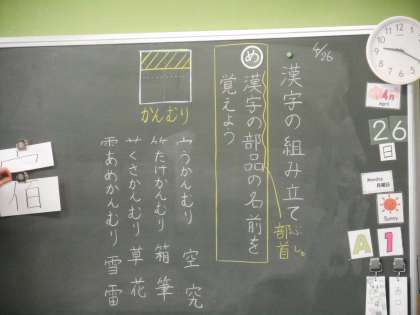 4/26
漢字の組み立て
ぶしゅ
部首
め
漢字の部品の名前を
覚えよう
かんむり
宀うかんむり 空 究
⺮たけかんむり 箱 筆
艹くさかんむり 草 花
⻗あめかんむり 雪 雷
宀
伯
4月
April
26
日
Monday
月曜日
Sunny
A
1